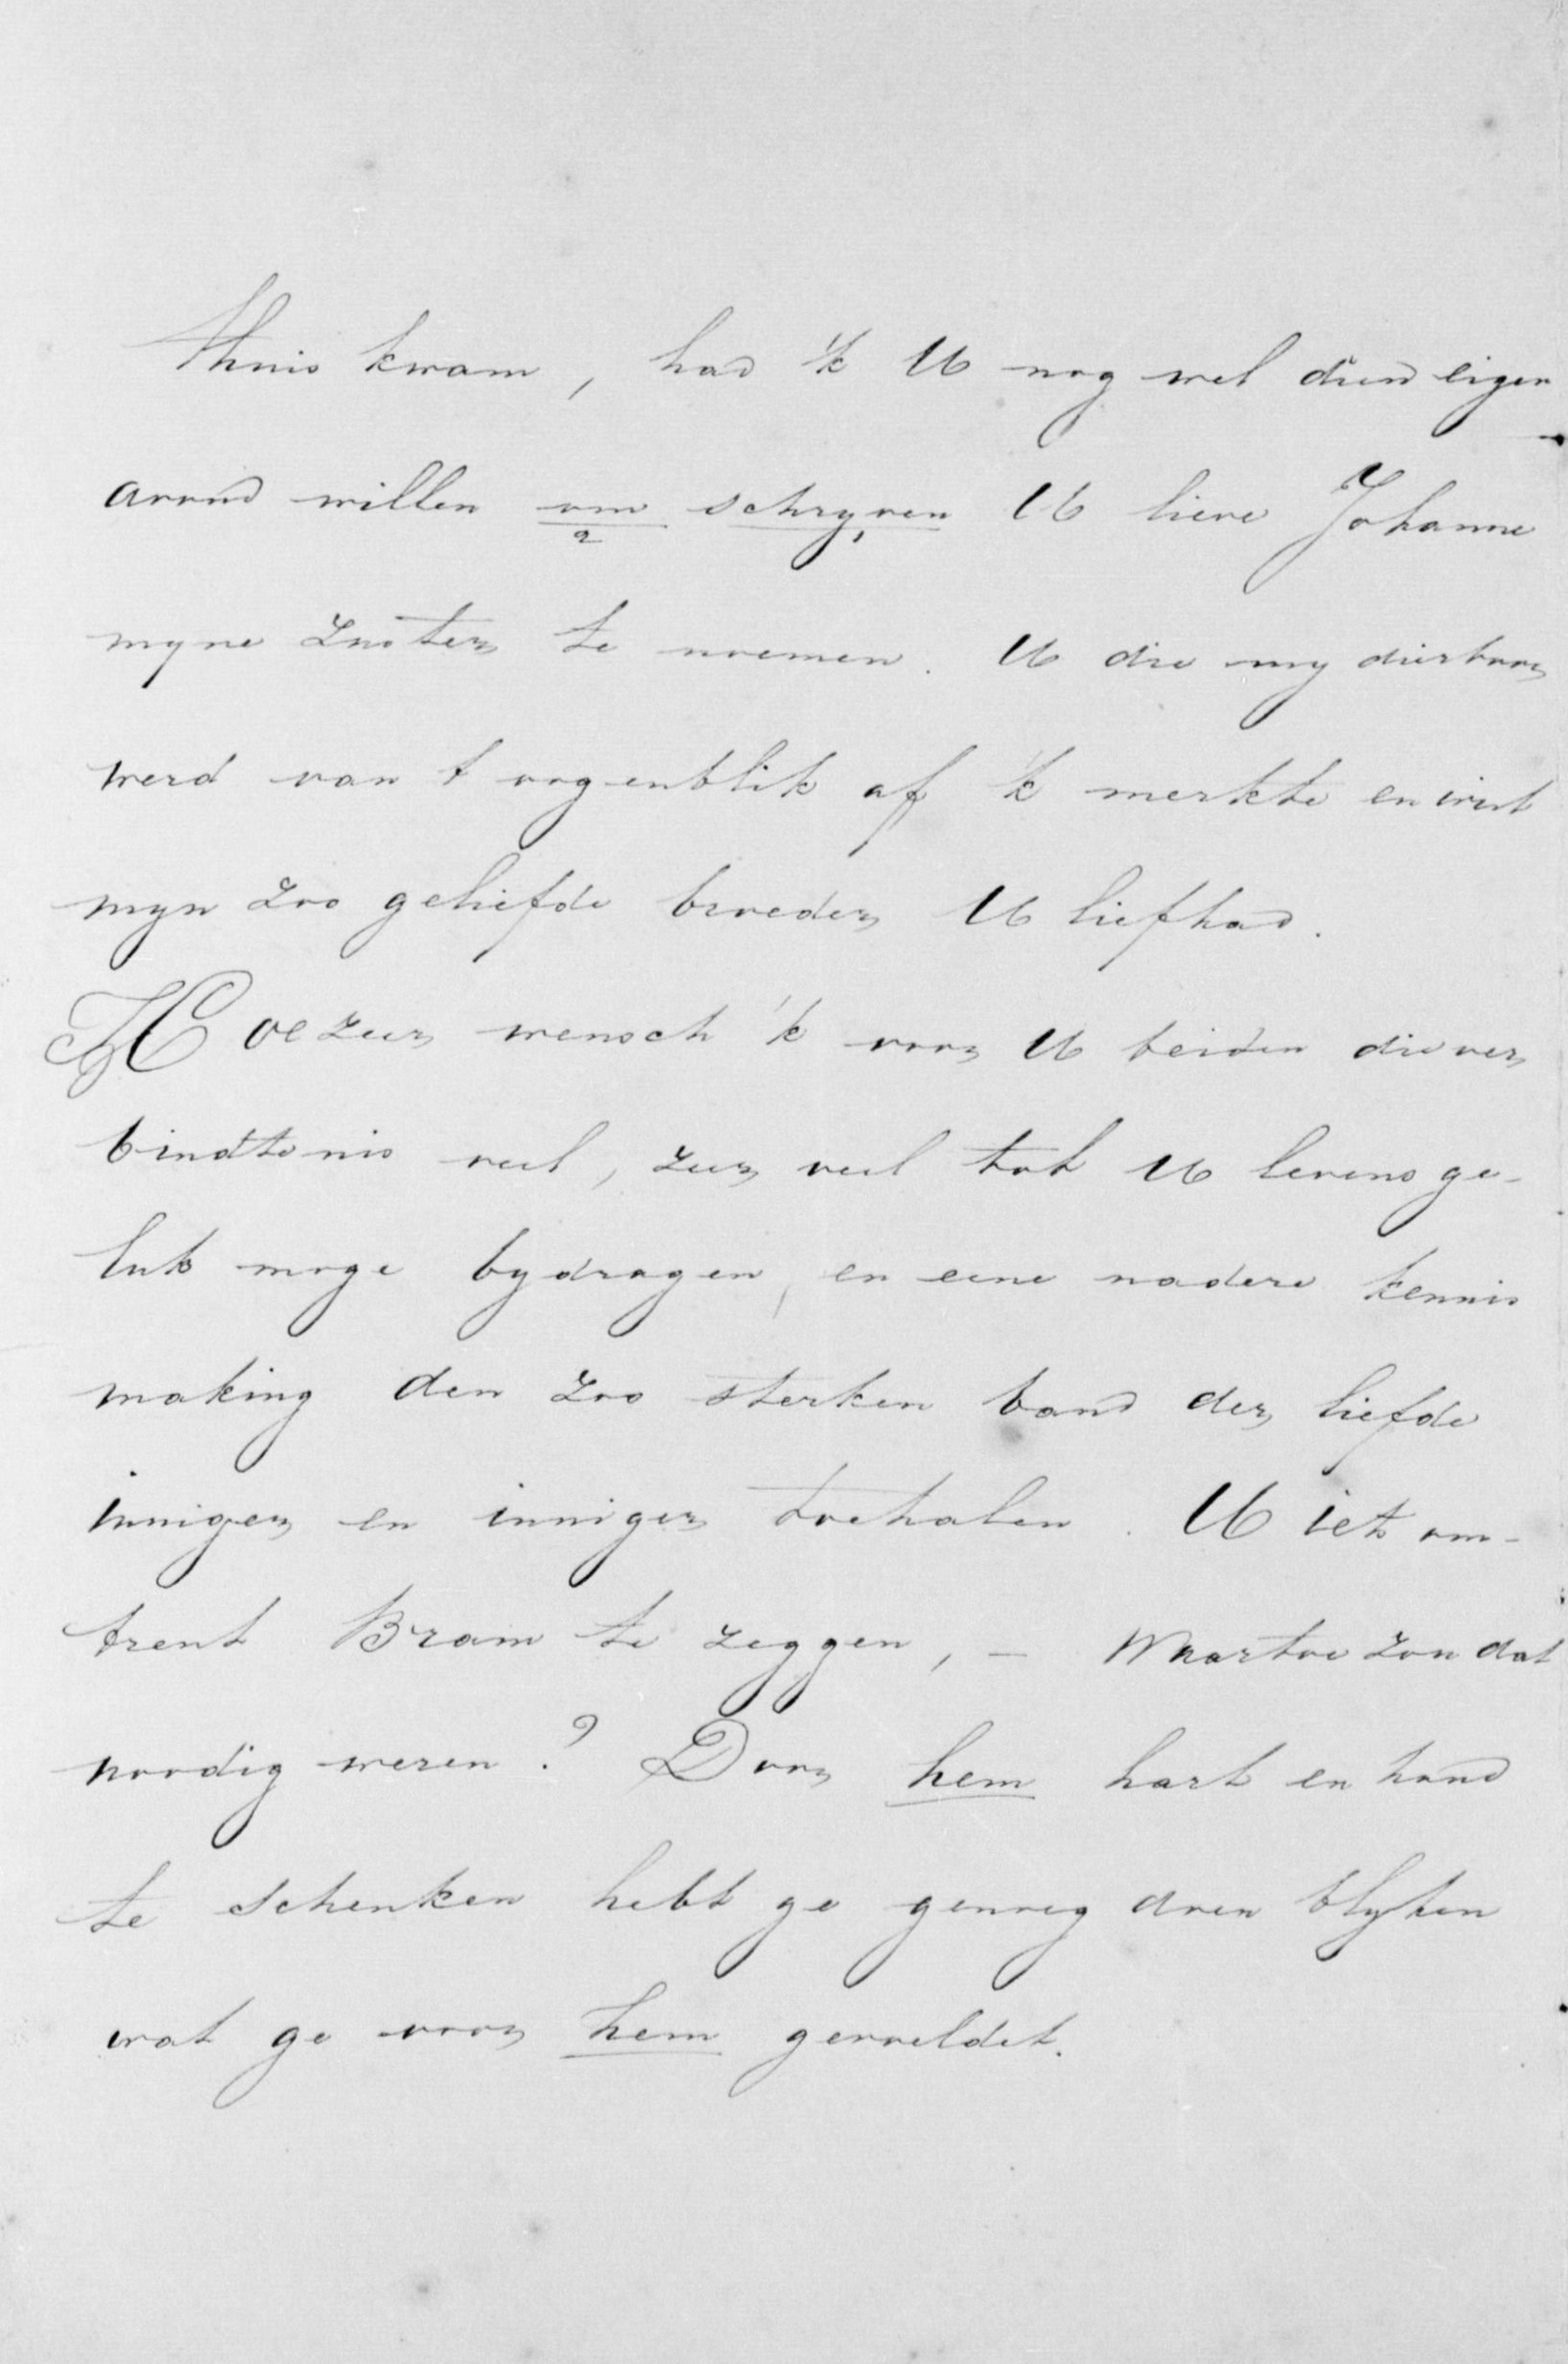 thuis kwam, had 'k U nog wel dien eigen
avond willen om schryven U lieve Johanne
2 1
myne zuster te noemen. U die my dierbaar
werd van t oogenblik af 'k merkte en wist
myn zoo geliefde broeder U liefhad.
Hoezeer wensch 'k voor U beiden die ver
bindtenis veel, zeer veel tot U levens ge-
luk moge bydragen, en eene nadere kennis
making den zoo sterken band der liefde
inniger en inniger toehalen. U iets om-
trent Bram te zeggen, - Waartoe zou dat
noodig wezen? Door hem hart en hand
te schenken hebt ge genoeg doen blyken
wat ge voor hem gevoeldet.